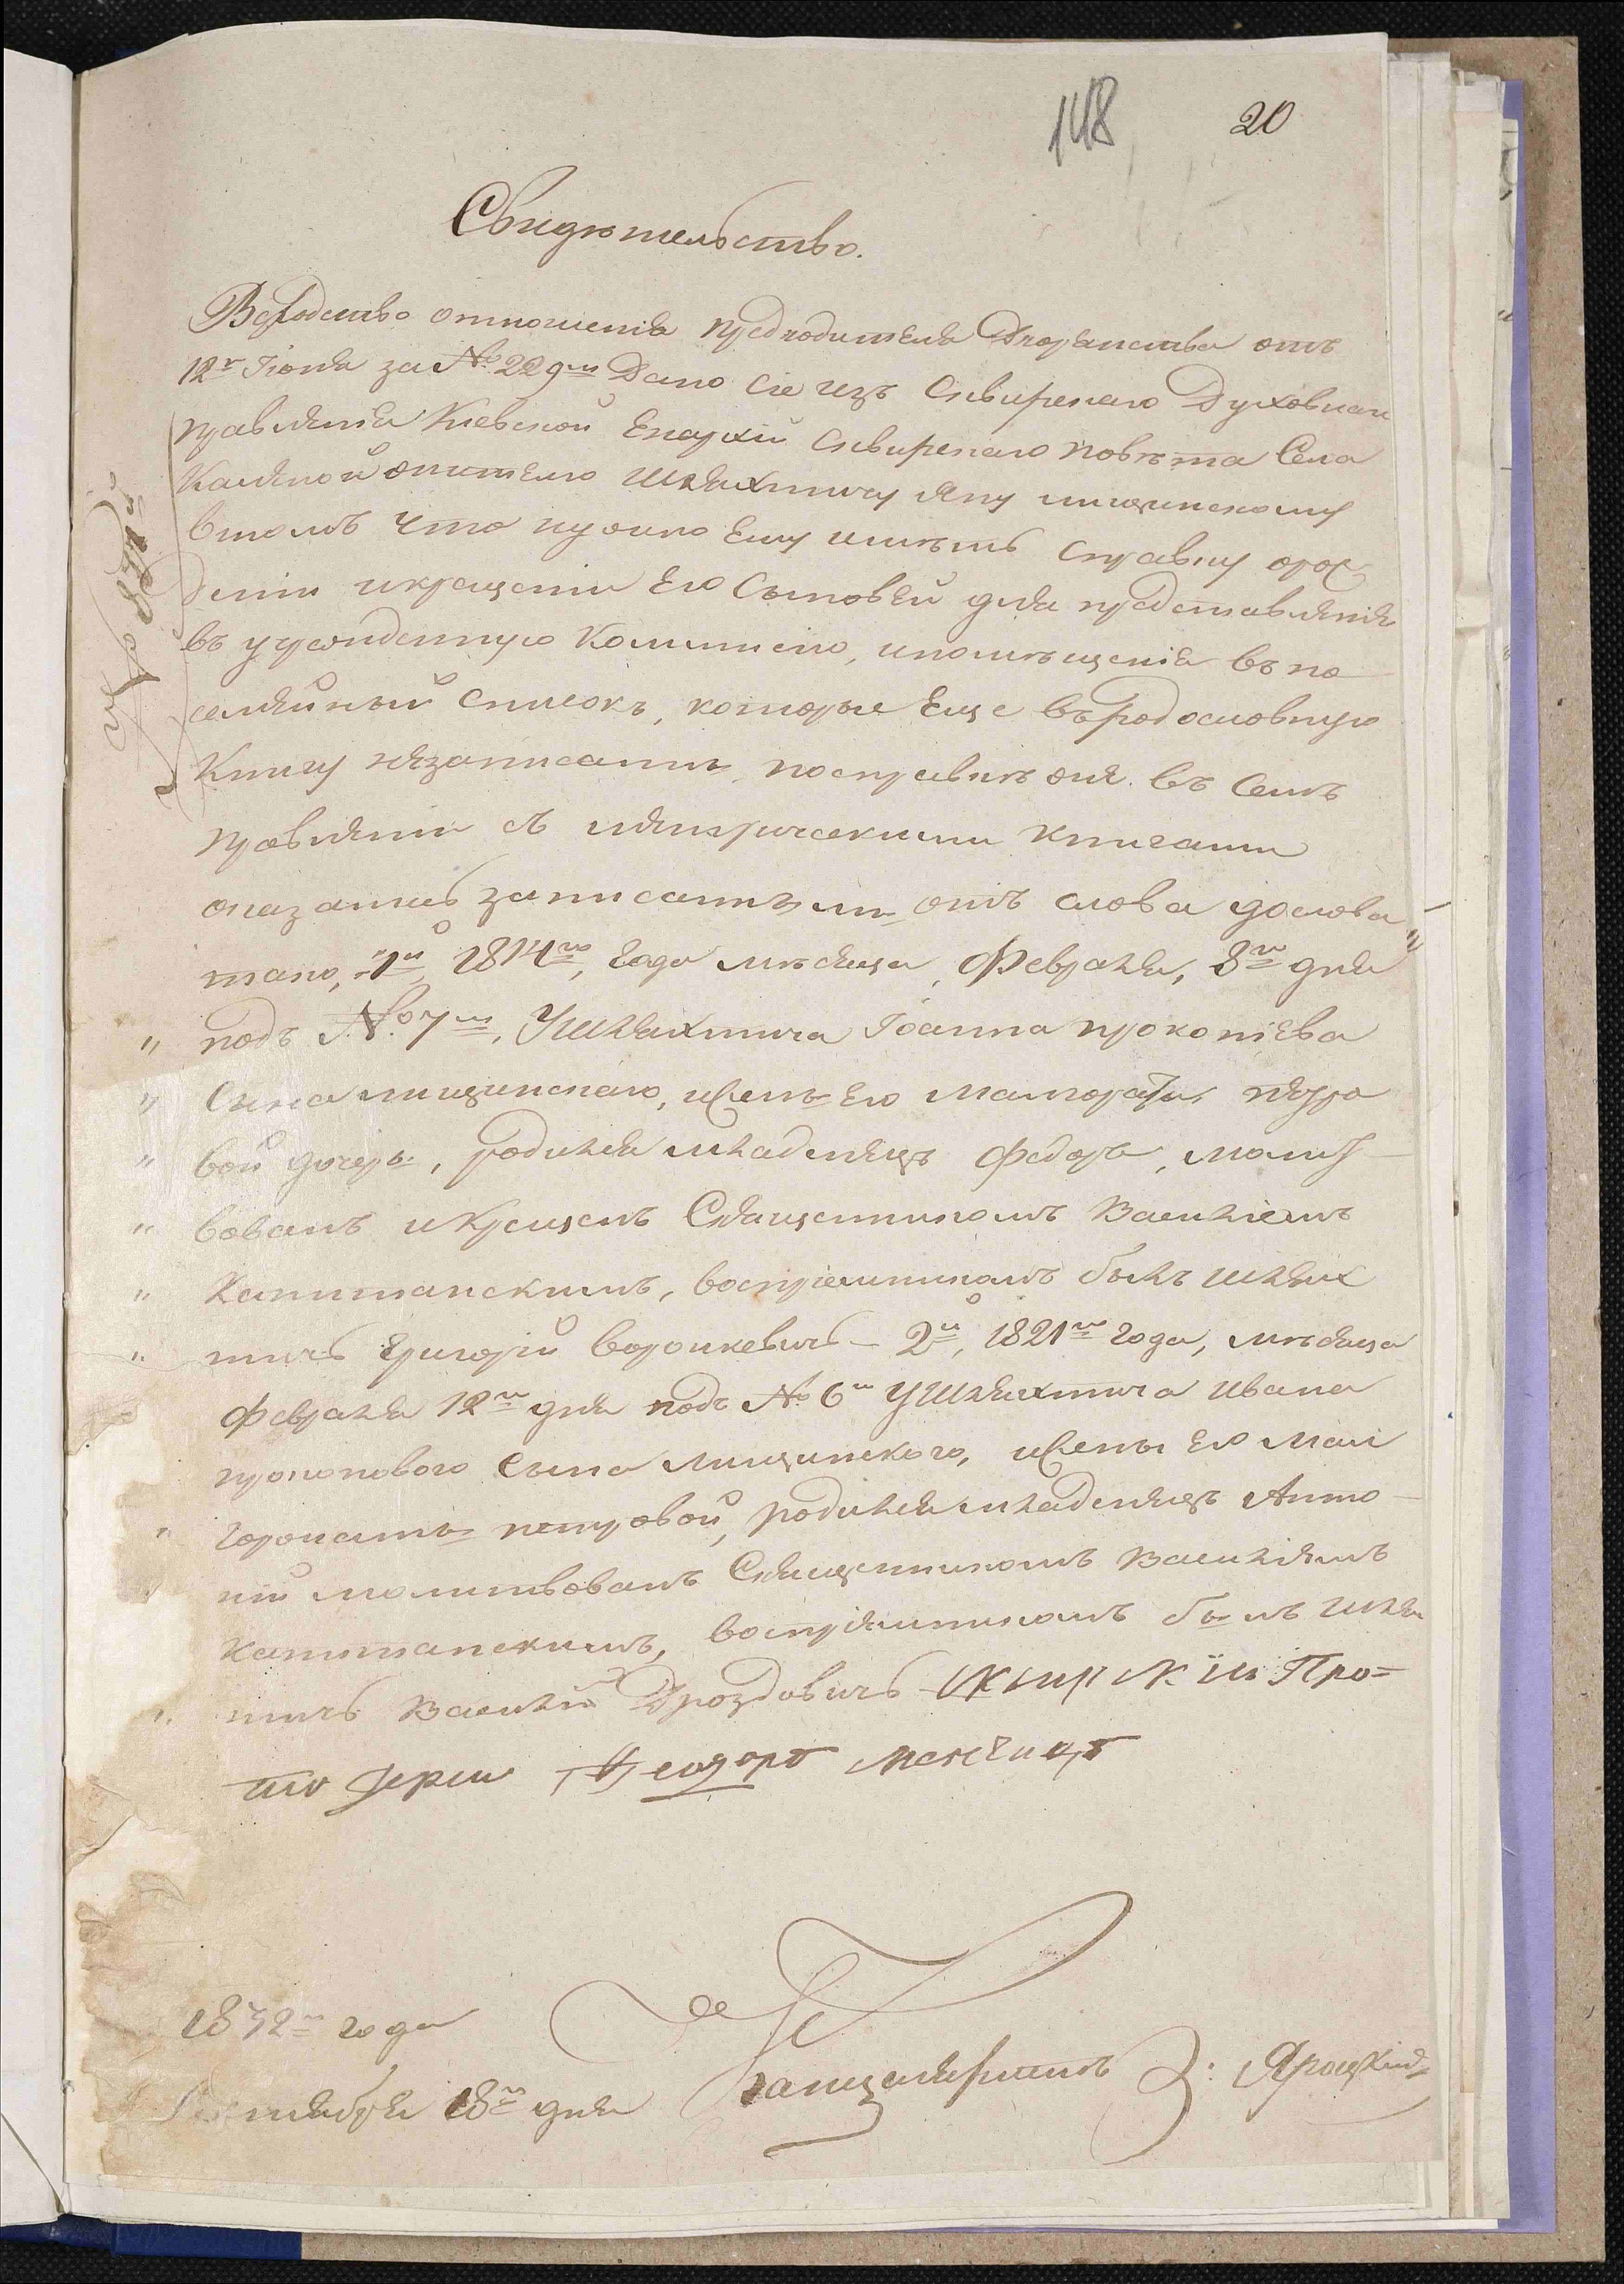 148 20
Свидѣтельство.
Вслѣдство отношенія предводителя Дворянства отъ
12го Іюня за № 229м Дано сіе изъ Сквирскаго Духовнаго
правленія Кіевской Епархіи Сквирскаго повѣта Села
Каленной жителю Шляхтичу Яну лищинскому
втомъ что нужно Ему имѣть справку орож
деніи икрещеніи Его Сыновей для представленія
въ учрежденную Коммисію, ипомѣщенія въ по
семейный списокъ, которые Еще въ родословную
Книгу незаписанны, посправкѣ оня въ Семъ
правленіи съ метрическими книгами
оказались записанными отъ слова дослова
тако, 1й, 1814го, года мѣсяца, Февраля, 8го дня
подъ № 7м, Ушляхтича Іоанна прокопіева
Сына лищинскаго, ижены Его Малгораты петро
вой дочеры, родился младенецъ Федоръ, молит
вованъ икрещенъ Священникомъ Василіемъ
Капитанскимъ, воспріемникомъ былъ шлях
тичъ Григорій Воронкевичъ — 2й, 1821го года, мѣсяца
Февраля 12го дня подъ № 6м Ушляхтича Ивана
прокопового Сына Лищинскаго, ижены Его Мал
горжаты петровой, родился младенецъ Анто
ній молитвованъ Священникомъ Василіемъ
Капитанскимъ, воспріемникомъ былъ шлях
тичъ Василій Дроздовичъ Сквирскій Про=
то іерей Феодоръ
1832го года
Сентября 18го дня Канцеляристъ